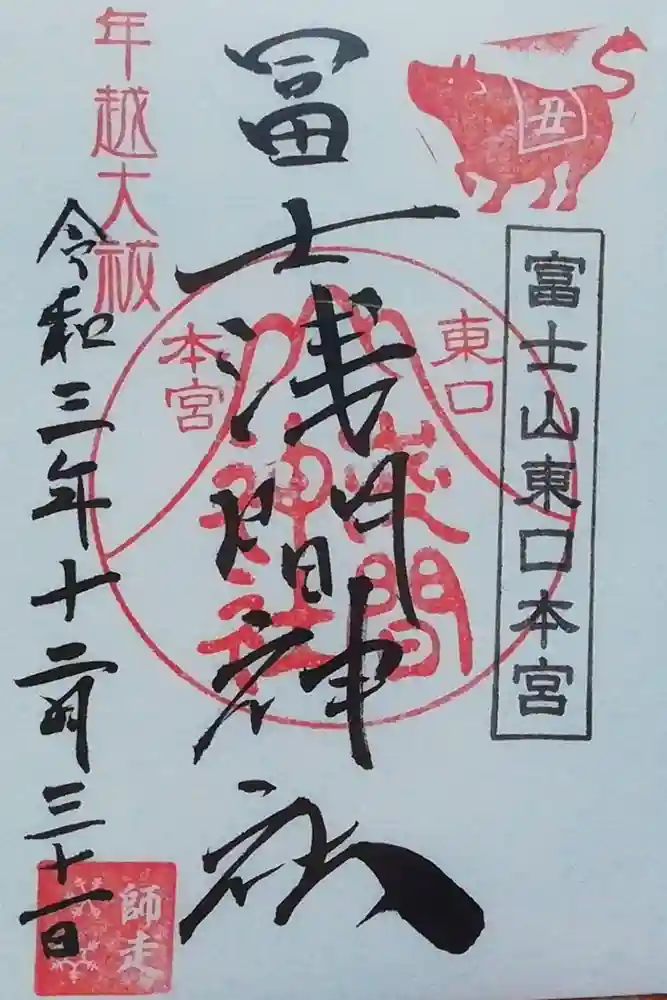 丑
富士山東口本宮
冨士浅間神社
東口
本宮
浅間
神社
年越大祓
令和三年十二月三十一日
師走